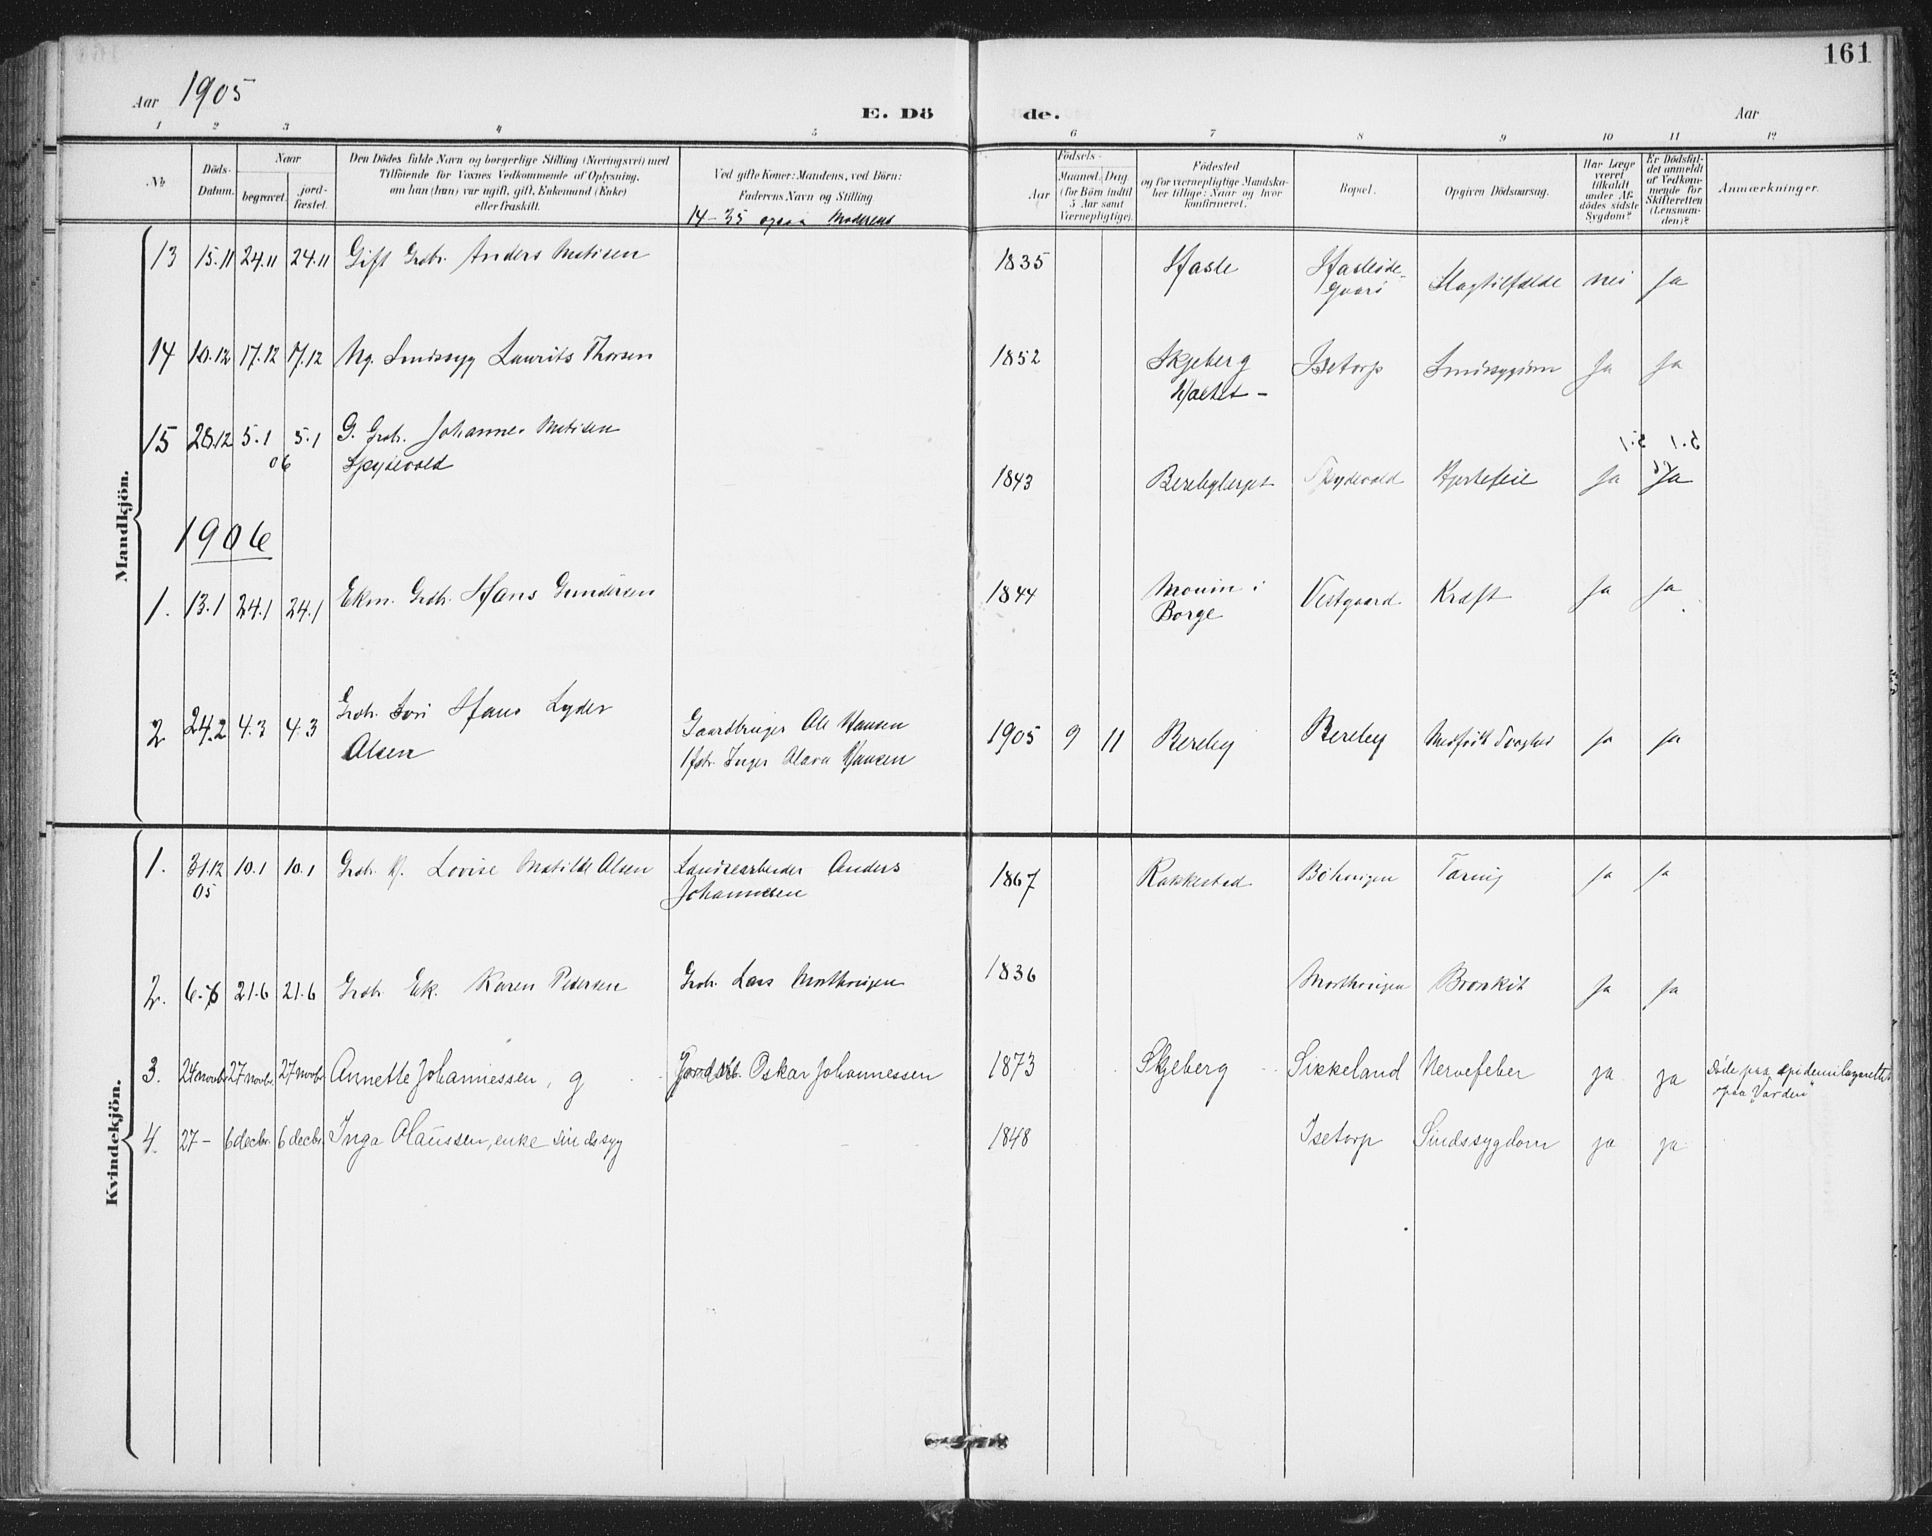 161
Aar 1905
E. Dö de.
Aar
1 2 3 4 5 6 7 8 9 10 11 12
No.
Döds-Datum.
Naar
begravet.
jord-fæstet.
Den Dödes fulde Navn og borgerlige Stilling (Næringsvei) med
Tilföiende for Voxnes Vedkommende af Oplysning,
om han (hun) var ugift, gift, Enkemand (Enke)
eller fraskilt.
Ved gifte Koner: Mandens, ved Börn:
Faderens Navn og Stilling
14-35 ogsaa Moderens
Födsels-
Aar
Maaned. Dag.
(for Börn indtil
5 Aar samt
Værnepligtige).
Födested
og for værnepligtige Mandska-
ber tillige: Naar og hvor
konfirmeret.
Bopæl.
Opgiven Dödsaarsag.
Har Læge
været
tilkaldt
under Af-
dödes sidste
Sygdom?
Er Dödsfal-
det anmeldt
af Vedkom-
mende for
Skifteretten
(Lensman-
den)?
Anmærkninger.
Mandkjön.
13 15.11 24.11 24.11 Gift Grdbr. Anders Matisen 1835 Hasle Hasleøde- Slagtilfælde nei ja
gaard
14 10.12 17.12 17.12 Ug. Sindssyg Laurits Thorsen 1852 Skjeberg Isetorp Sindssygdom ja ja
15 28.12 5.1 5.1 G. Grdbr. Johannes Matisen
06 Spydevold 1843 Berebylerpet Spydevold Hjertefeil ja ja
5.1 5.1
1906
1. 13.1 24.1 24.1 Ekm. Grdbr. Hans Gundersen 1844 Moum i Vestgaard Kræft ja ja
Borge
2 24.2 4.3 4.3 Grdbr. Søn Hans Lyder Gaardbruger Ole Hansen 1905 9 11 Bereby Bereby Medfødt Svaghed ja ja
Olsen Hstr. Inger Olava Hansen
Kvindekjön.
1. 31.12 10.1 10.1 Grdbr. K. Lovise Matilde Olsen Landrearbeider Anders 1867 Rakkestad Böhningen Tæring ja ja
05 Johannesen
2. 6.6 21.6 21.6 Grdbr. Ek. Karen Pedersen Grdbr. Lars Morthougen 1836 Morthougen Bronkit ja ja
3. 24 novbr 27 novbr. 27 novbr. Annette Johannessen, g Oskar Johannessen 1873 Skjeberg Sikkeland Nervefeber ja ja Döde paa epidemilazarettet
paa "Varden"
4. 27 – 6 decbr. 6 decbr. Inga Olaussen, enke sindssyg 1848 Isetorp Sindssygdom ja ja